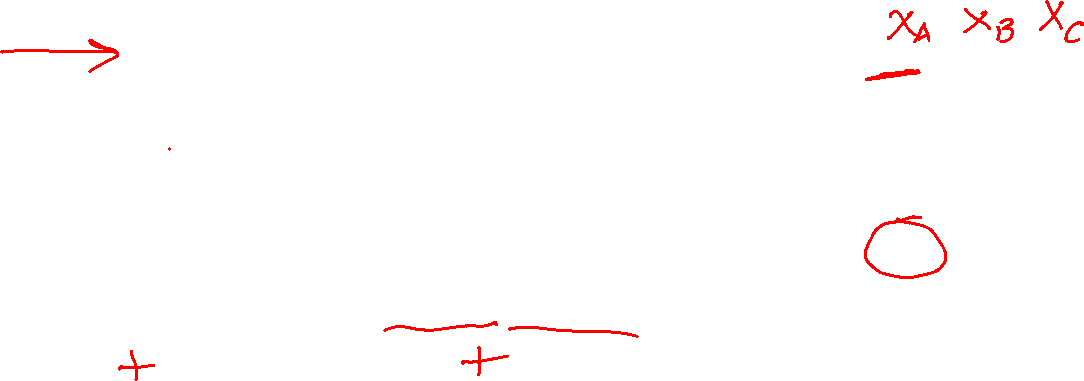 x_A x_B x_C
+ +